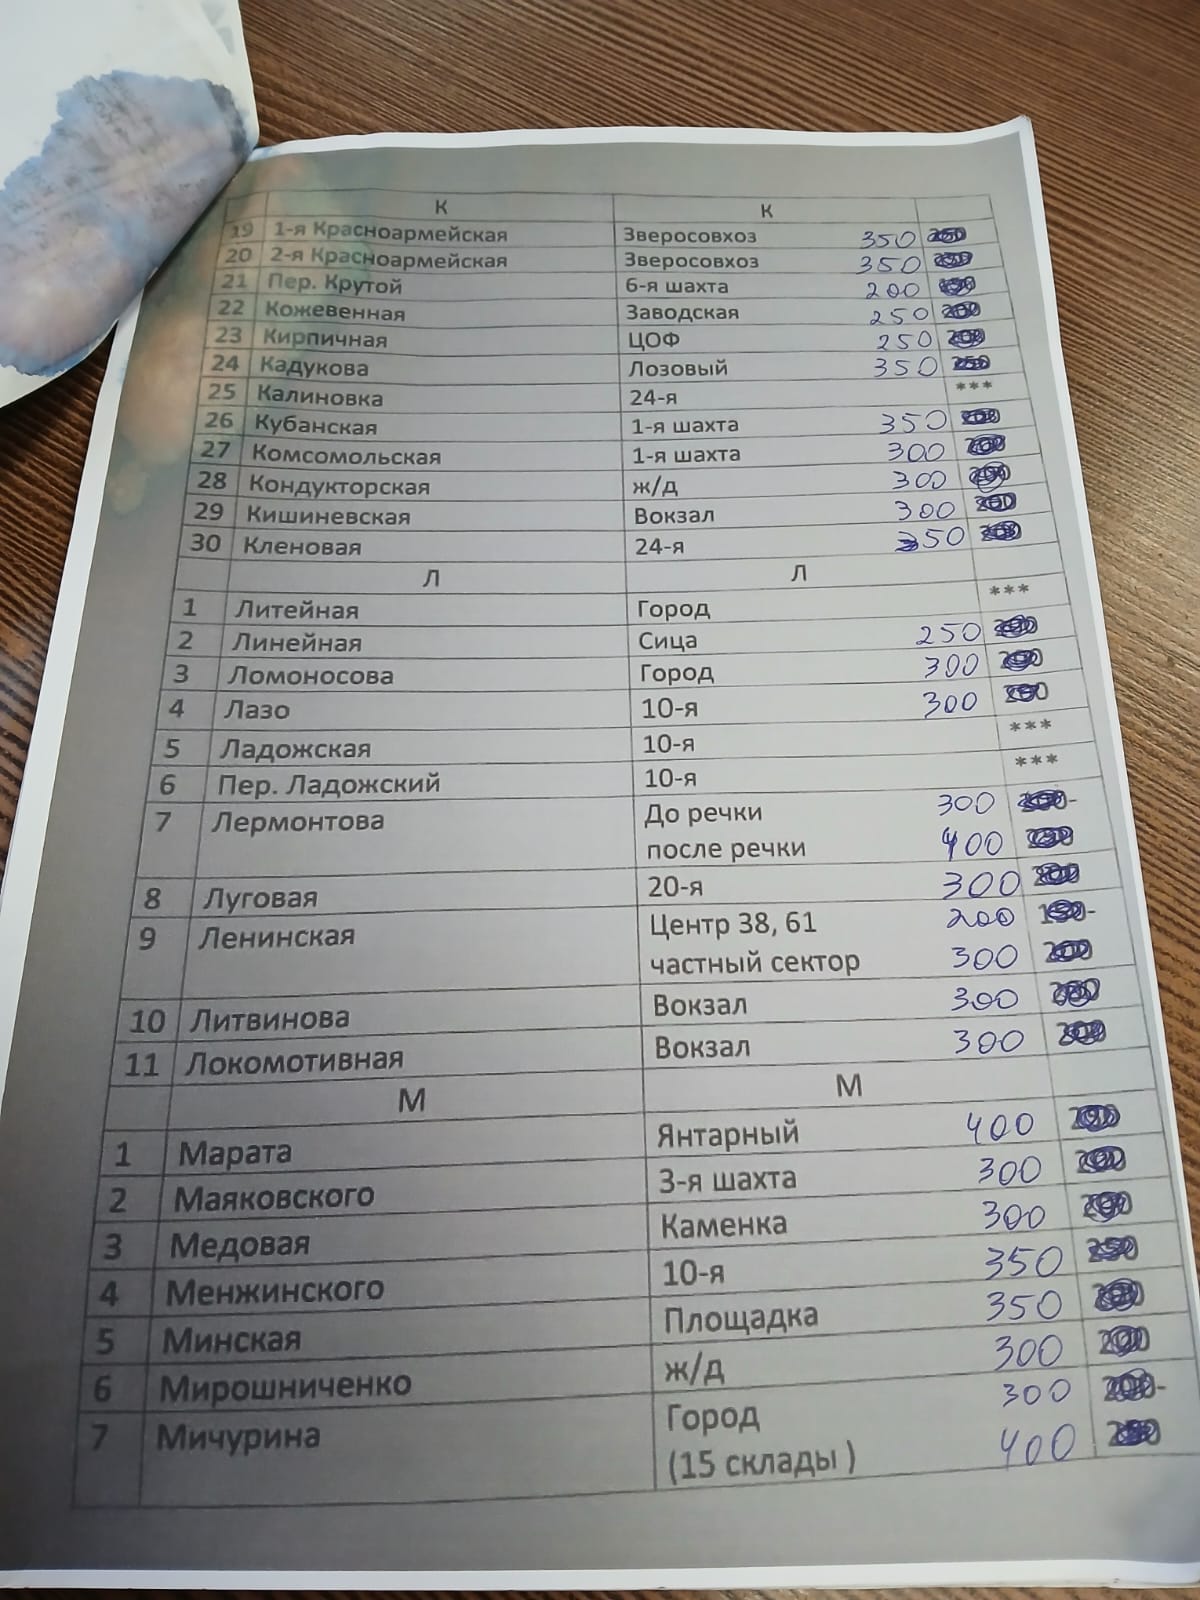 К К
19 1-я Красноармейская Зверосовхоз 350
20 2-я Красноармейская Зверосовхоз 350
21 Пер. Крутой 6-я шахта 200
22 Кожевенная Заводская 250
23 Кирпичная ЦОФ 250
24 Кадукова Лозовый 350
25 Калиновка 24-я ***
26 Кубанская 1-я шахта 350
27 Комсомольская 1-я шахта 300
28 Кондукторская ж/д 300
29 Кишиневская Вокзал 300
30 Кленовая 24-я 350
Л Л
1 Литейная Город ***
2 Линейная Сица 250
3 Ломоносова Город 300
4 Лазо 10-я 300
5 Ладожская 10-я ***
6 Пер. Ладожский 10-я ***
7 Лермонтова До речки 300
после речки 400
8 Луговая 20-я 300
9 Ленинская Центр 38, 61 200
частный сектор 300
10 Литвинова Вокзал 300
11 Локомотивная Вокзал 300
М М
1 Марата Янтарный 400
2 Маяковского 3-я шахта 300
3 Медовая Каменка 300
4 Менжинского 10-я 350
5 Минская Площадка 350
6 Мирошниченко ж/д 300
7 Мичурина Город 300
(15 склады ) 400